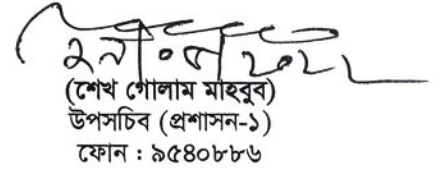 (শেখ গোলাম মাহবুব)
উপসচিব (প্রশাসন-১)
ফোন : ৯৫৪০৮৮৬